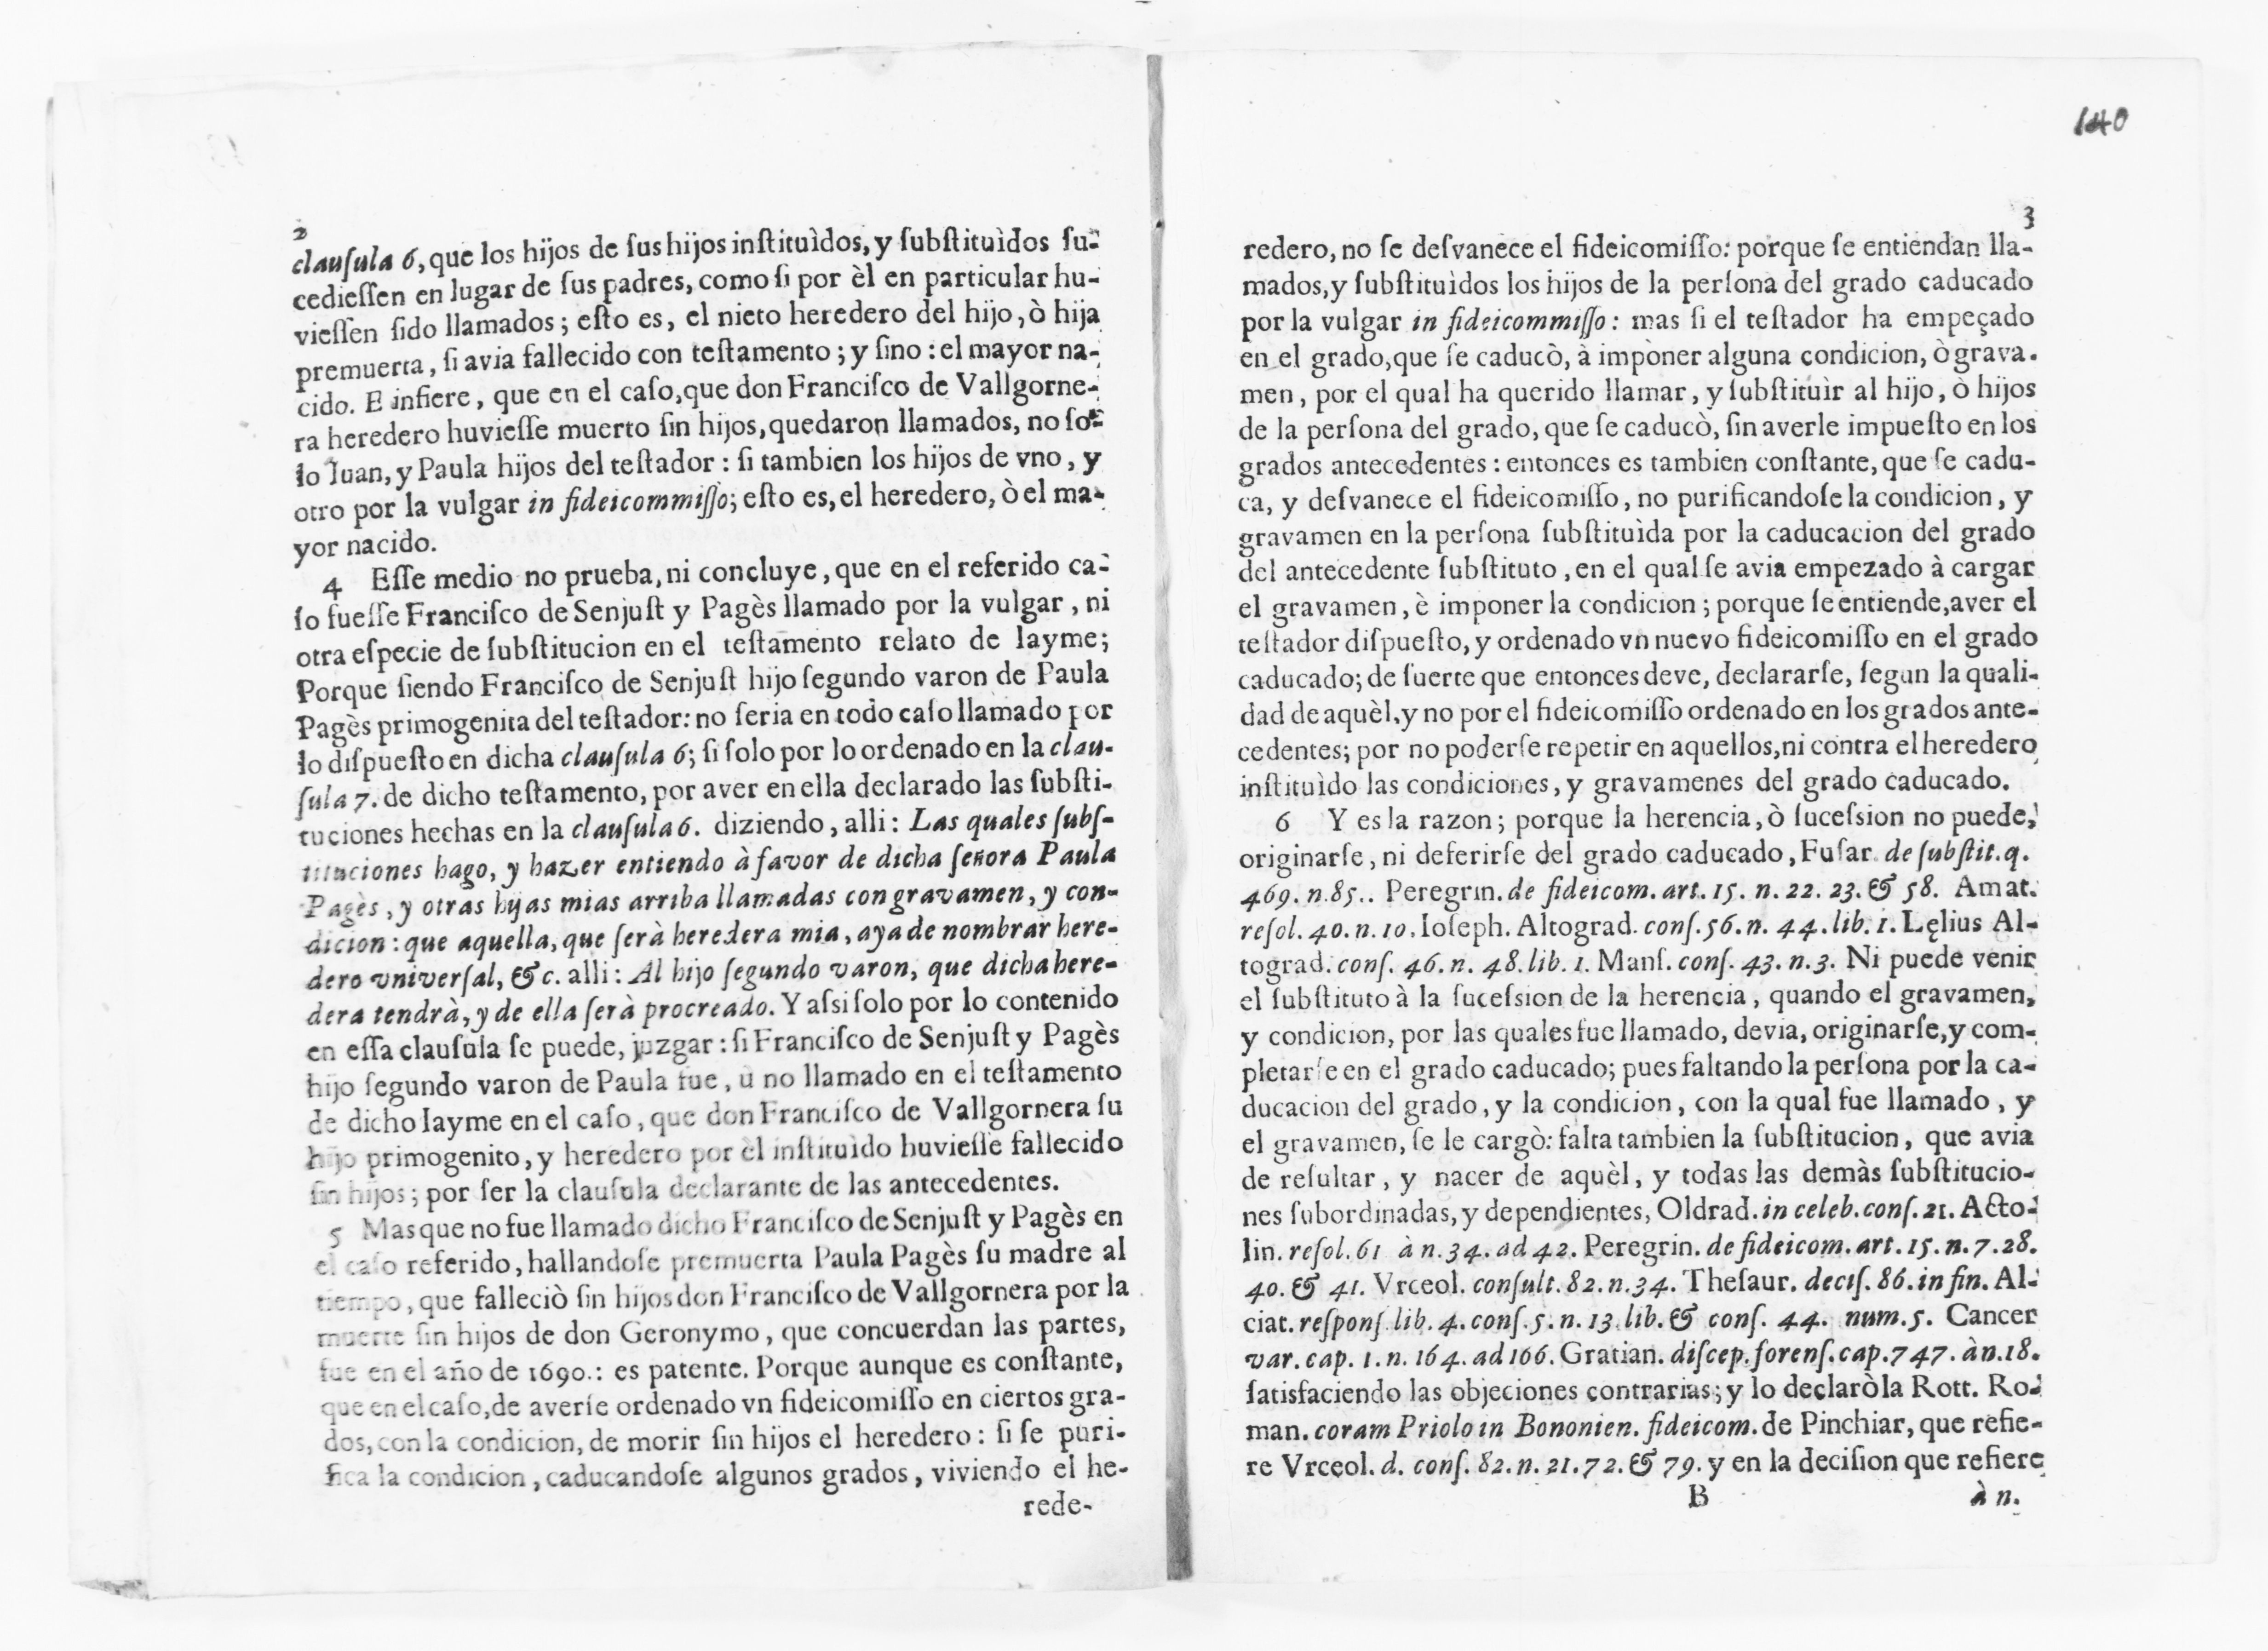 2
clauſula 6, que los hijos de ſus hijos inſtituìdos, y ſubſtituìdos ſu-
cedieſſen en lugar de ſus padres, como ſi por èl en particular hu-
vieſſen ſido llamados; eſto es, el nieto heredero del hijo, ò hija
premuerta, ſi avia fallecido con teſtamento; y ſino: el mayor na-
cido. E infiere, que en el caſo, que don Franciſco de Vallgorne-
ra heredero huvieſſe muerto ſin hijos, quedaron llamados, no ſo-
lo Iuan, y Paula hijos del teſtador: ſi tambien los hijos de vno, y
otro por la vulgar in fideicommiſſo; eſto es, el heredero, ò el ma-
yor nacido.
4 Eſſe medio no prueba, ni concluye, que en el referido ca-
ſo fueſſe Franciſco de Senjuſt y Pagès llamado por la vulgar, ni
otra eſpecie de ſubſtitucion en el teſtamento relato de Iayme;
Porque ſiendo Franciſco de Senjuſt hijo ſegundo varon de Paula
Pagès primogenita del teſtador: no ſeria en todo caſo llamado por
lo diſpueſto en dicha clauſula 6; ſi ſolo por lo ordenado en la clau-
ſula 7. de dicho teſtamento, por aver en ella declarado las ſubſti-
tuciones hechas en la clauſula 6. diziendo, alli: Las quales ſubſ-
tituciones hago, y hazer entiendo à favor de dicha ſeñora Paula
Pagès, y otras hijas mias arriba llamadas con gravamen, y con-
dicion: que aquella, que ſerà heredera mia, aya de nombrar here-
dero vniverſal, &c. alli: Al hijo ſegundo varon, que dicha here-
dera tendrà, y de ella ſerà procreado. Y aſsi ſolo por lo contenido
en eſſa clauſula ſe puede, juzgar: ſi Franciſco de Senjuſt y Pagès
hijo ſegundo varon de Paula fue, ù no llamado en el teſtamento
de dicho Iayme en el caſo, que don Franciſco de Vallgornera ſu
hijo primogenito, y heredero por èl inſtituìdo huvieſſe fallecido
ſin hijos; por ſer la clauſula declarante de las antecedentes.
5 Mas que no fue llamado dicho Franciſco de Senjuſt y Pagès en
el caſo referido, hallandoſe premuerta Paula Pagès ſu madre al
tiempo, que falleciò ſin hijos don Franciſco de Vallgornera por la
muerte ſin hijos de don Geronymo, que concuerdan las partes,
fue en el año de 1690.: es patente. Porque aunque es conſtante,
que en el caſo, de averſe ordenado vn fideicomiſſo en ciertos gra-
dos, con la condicion, de morir ſin hijos el heredero: ſi ſe puri-
fica la condicion, caducandoſe algunos grados, viviendo el he-
rede-
140
3
redero, no ſe deſvanece el fideicomiſſo: porque ſe entiendan lla-
mados, y ſubſtituìdos los hijos de la perſona del grado caducado
por la vulgar in fideicommiſſo: mas ſi el teſtador ha empeçado
en el grado, que ſe caducò, à impòner alguna condicion, ò grava-
men, por el qual ha querido llamar, y ſubſtituìr al hijo, ò hijos
de la perſona del grado, que ſe caducò, ſin averle impueſto en los
grados antecedentes: entonces es tambien conſtante, que ſe cadu-
ca, y deſvanece el fideicomiſſo, no purificandoſe la condicion, y
gravamen en la perſona ſubſtituìda por la caducacion del grado
del antecedente ſubſtituto, en el qual ſe avia empezado à cargar
el gravamen, è imponer la condicion; porque ſe entiende, aver el
teſtador diſpueſto, y ordenado vn nuevo fideicomiſſo en el grado
caducado; de ſuerte que entonces deve, declararſe, ſegun la quali-
dad de aquèl, y no por el fideicomiſſo ordenado en los grados ante-
cedentes; por no poderſe repetir en aquellos, ni contra el heredero
inſtituìdo las condiciones, y gravamenes del grado caducado.
6 Y es la razon; porque la herencia, ò ſuceſsion no puede,
originarſe, ni deferirſe del grado caducado, Fuſar. de ſubſtit. q.
469. n. 85.. Peregrin. de fideicom. art. 15. n. 22. 23. & 58. Amat.
reſol. 40. n. 10. Ioſeph. Altograd. conſ. 56. n. 44. lib. 1. Lęlius Al-
tograd. conſ. 46. n. 48. lib. 1. Manſ. conſ. 43. n. 3. Ni puede venir
el ſubſtituto à la ſuceſsion de la herencia, quando el gravamen,
y condicion, por las quales fue llamado, devia, originarſe, y com-
pletarſe en el grado caducado; pues faltando la perſona por la ca-
ducacion del grado, y la condicion, con la qual fue llamado, y
el gravamen, ſe le cargò: falta tambien la ſubſtitucion, que avia
de reſultar, y nacer de aquèl, y todas las demàs ſubſtitucio-
nes ſubordinadas, y dependientes, Oldrad. in celeb. conſ. 21. Acto-
lin. reſol. 61 à n. 34. ad 42. Peregrin. de fideicom. art. 15. n. 7. 28.
40. & 41. Vrceol. conſult. 82. n. 34. Theſaur. deciſ. 86. in fin. Al-
ciat. reſponſ lib. 4. conſ. 5. n. 13. lib. & conſ. 44. num. 5. Cancer
var. cap. 1. n. 164. ad 166. Gratian. diſcep. forenſ. cap. 747. à n. 18.
ſatisfaciendo las objeciones contrarias; y lo declarò la Rott. Ro-
man. coram Priolo in Bononien. fideicom. de Pinchiar, que refie-
re Vrceol. d. conſ. 82. n. 21. 72. & 79. y en la deciſion que refiere
B à n.